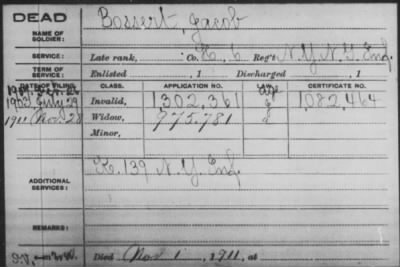 DEAD
NAME OF SOLDIER: Bossert, Jacob
SERVICE: Late rank, Co. K, 6 Reg't N.Y.N.G. Inf.
TERM OF SERVICE: Enlisted , 1 Discharged , 1
DATE OF FILING. CLASS. APPLICATION NO. LAW. CERTIFICATE NO.
1903 July 29 Invalid, 1,302,361 1,082,464
1911 Nov 28 Widow, 975,781
Minor,
ADDITIONAL SERVICES: K. 139 N.Y. Inf.
REMARKS:
Died Nov. 1, 1911, at